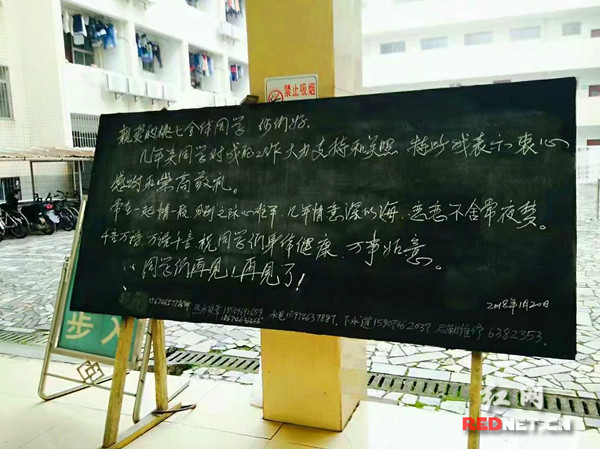 禁止吸烟
亲爱的桃七全体同学 你们好.
几年来同学对我的工作大力支持和关照 特此我表示衷心
感谢和崇高敬礼。
常在一起情一般 分别之际心难平 几年情意深似海 恋恋不舍常夜梦。
千言万语 万语千言 祝同学们身体健康 万事如意。
同学们再见！再见了！
2018年1月20日
水电 15974637887. 下水道 15907462037 后勤维修 6382353.
步入
红网
REDNET.CN